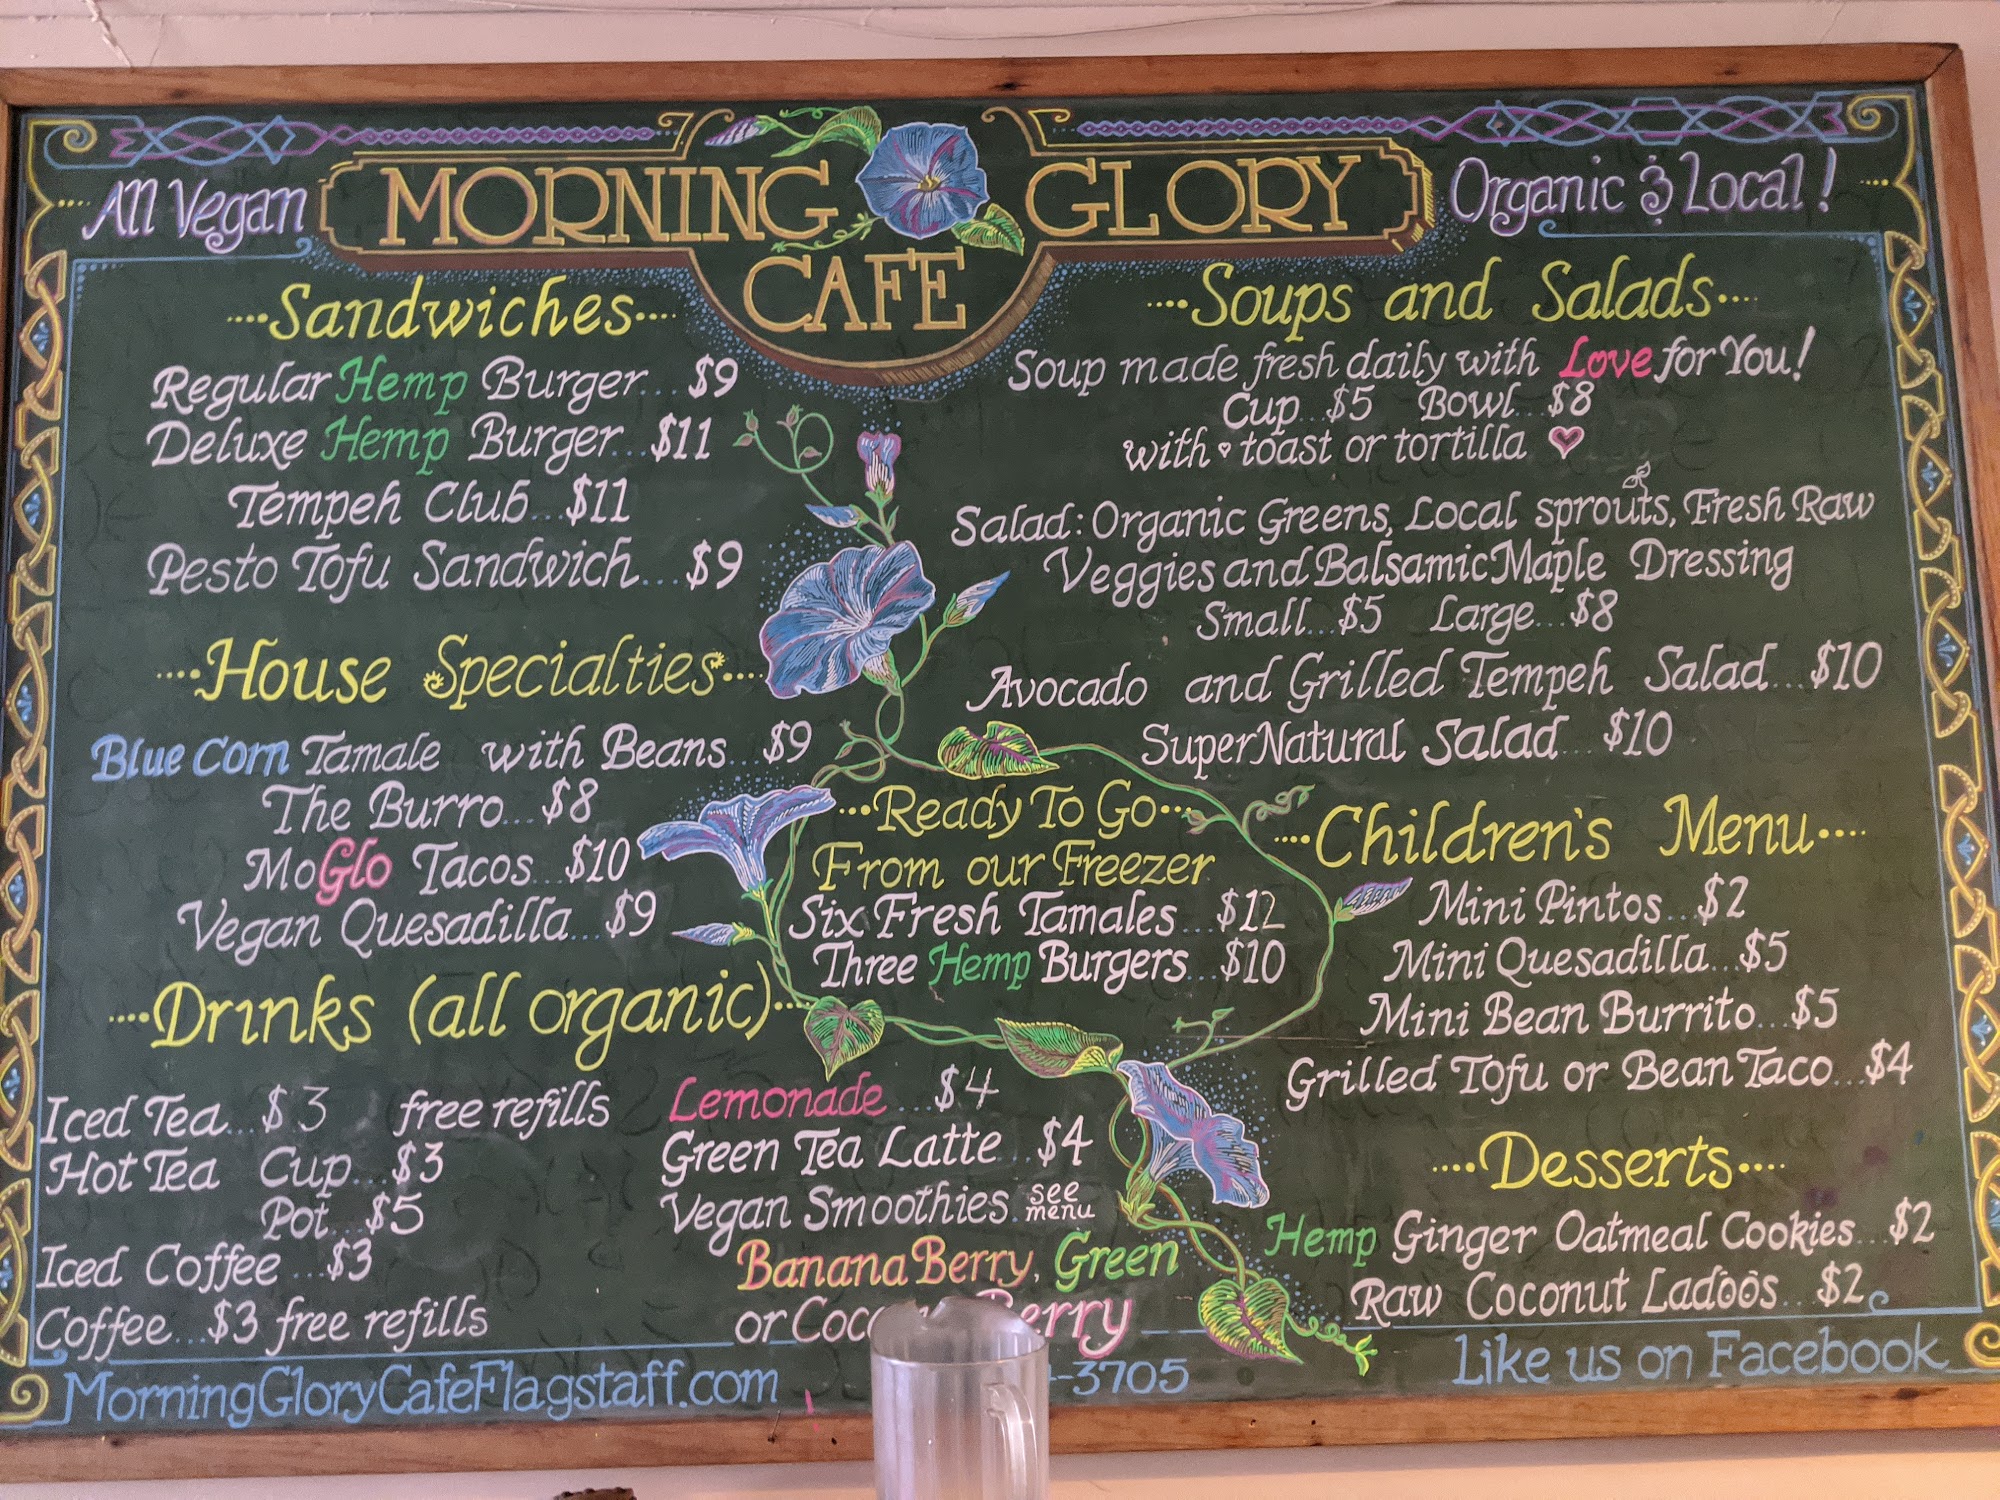 All Vegan
MORNING GLORY
CAFE
Organic & Local!
Sandwiches
Regular Hemp Burger... $9
Deluxe Hemp Burger... $11
Tempeh Club... $11
Pesto Tofu Sandwich... $9
House Specialties
Blue Corn Tamale with Beans... $9
The Burro... $8
MoGlo Tacos... $10
Vegan Quesadilla... $9
Drinks (all organic)
Iced Tea... $3 free refills
Hot Tea Cup... $3
Pot... $5
Iced Coffee... $3
Coffee... $3 free refills
Lemonade... $4
Green Tea Latte... $4
Vegan Smoothies... see menu
Banana Berry, Green
or
Ready To Go
From our Freezer
Six Fresh Tamales... $12
Three Hemp Burgers... $10
Soups and Salads
Soup made fresh daily with Love for You!
Cup... $5 Bowl... $8
with toast or tortilla
Salad: Organic Greens, Local sprouts, Fresh Raw
Veggies and Balsamic Maple Dressing
Small... $5 Large... $8
Avocado and Grilled Tempeh Salad... $10
SuperNatural Salad... $10
Children's Menu
Mini Pintos... $2
Mini Quesadilla... $5
Mini Bean Burrito... $5
Grilled Tofu or Bean Taco... $4
Desserts
Hemp Ginger Oatmeal Cookies... $2
Raw Coconut Ladōōs... $2
MorningGloryCafeFlagstaff.com
-3705
Like us on Facebook